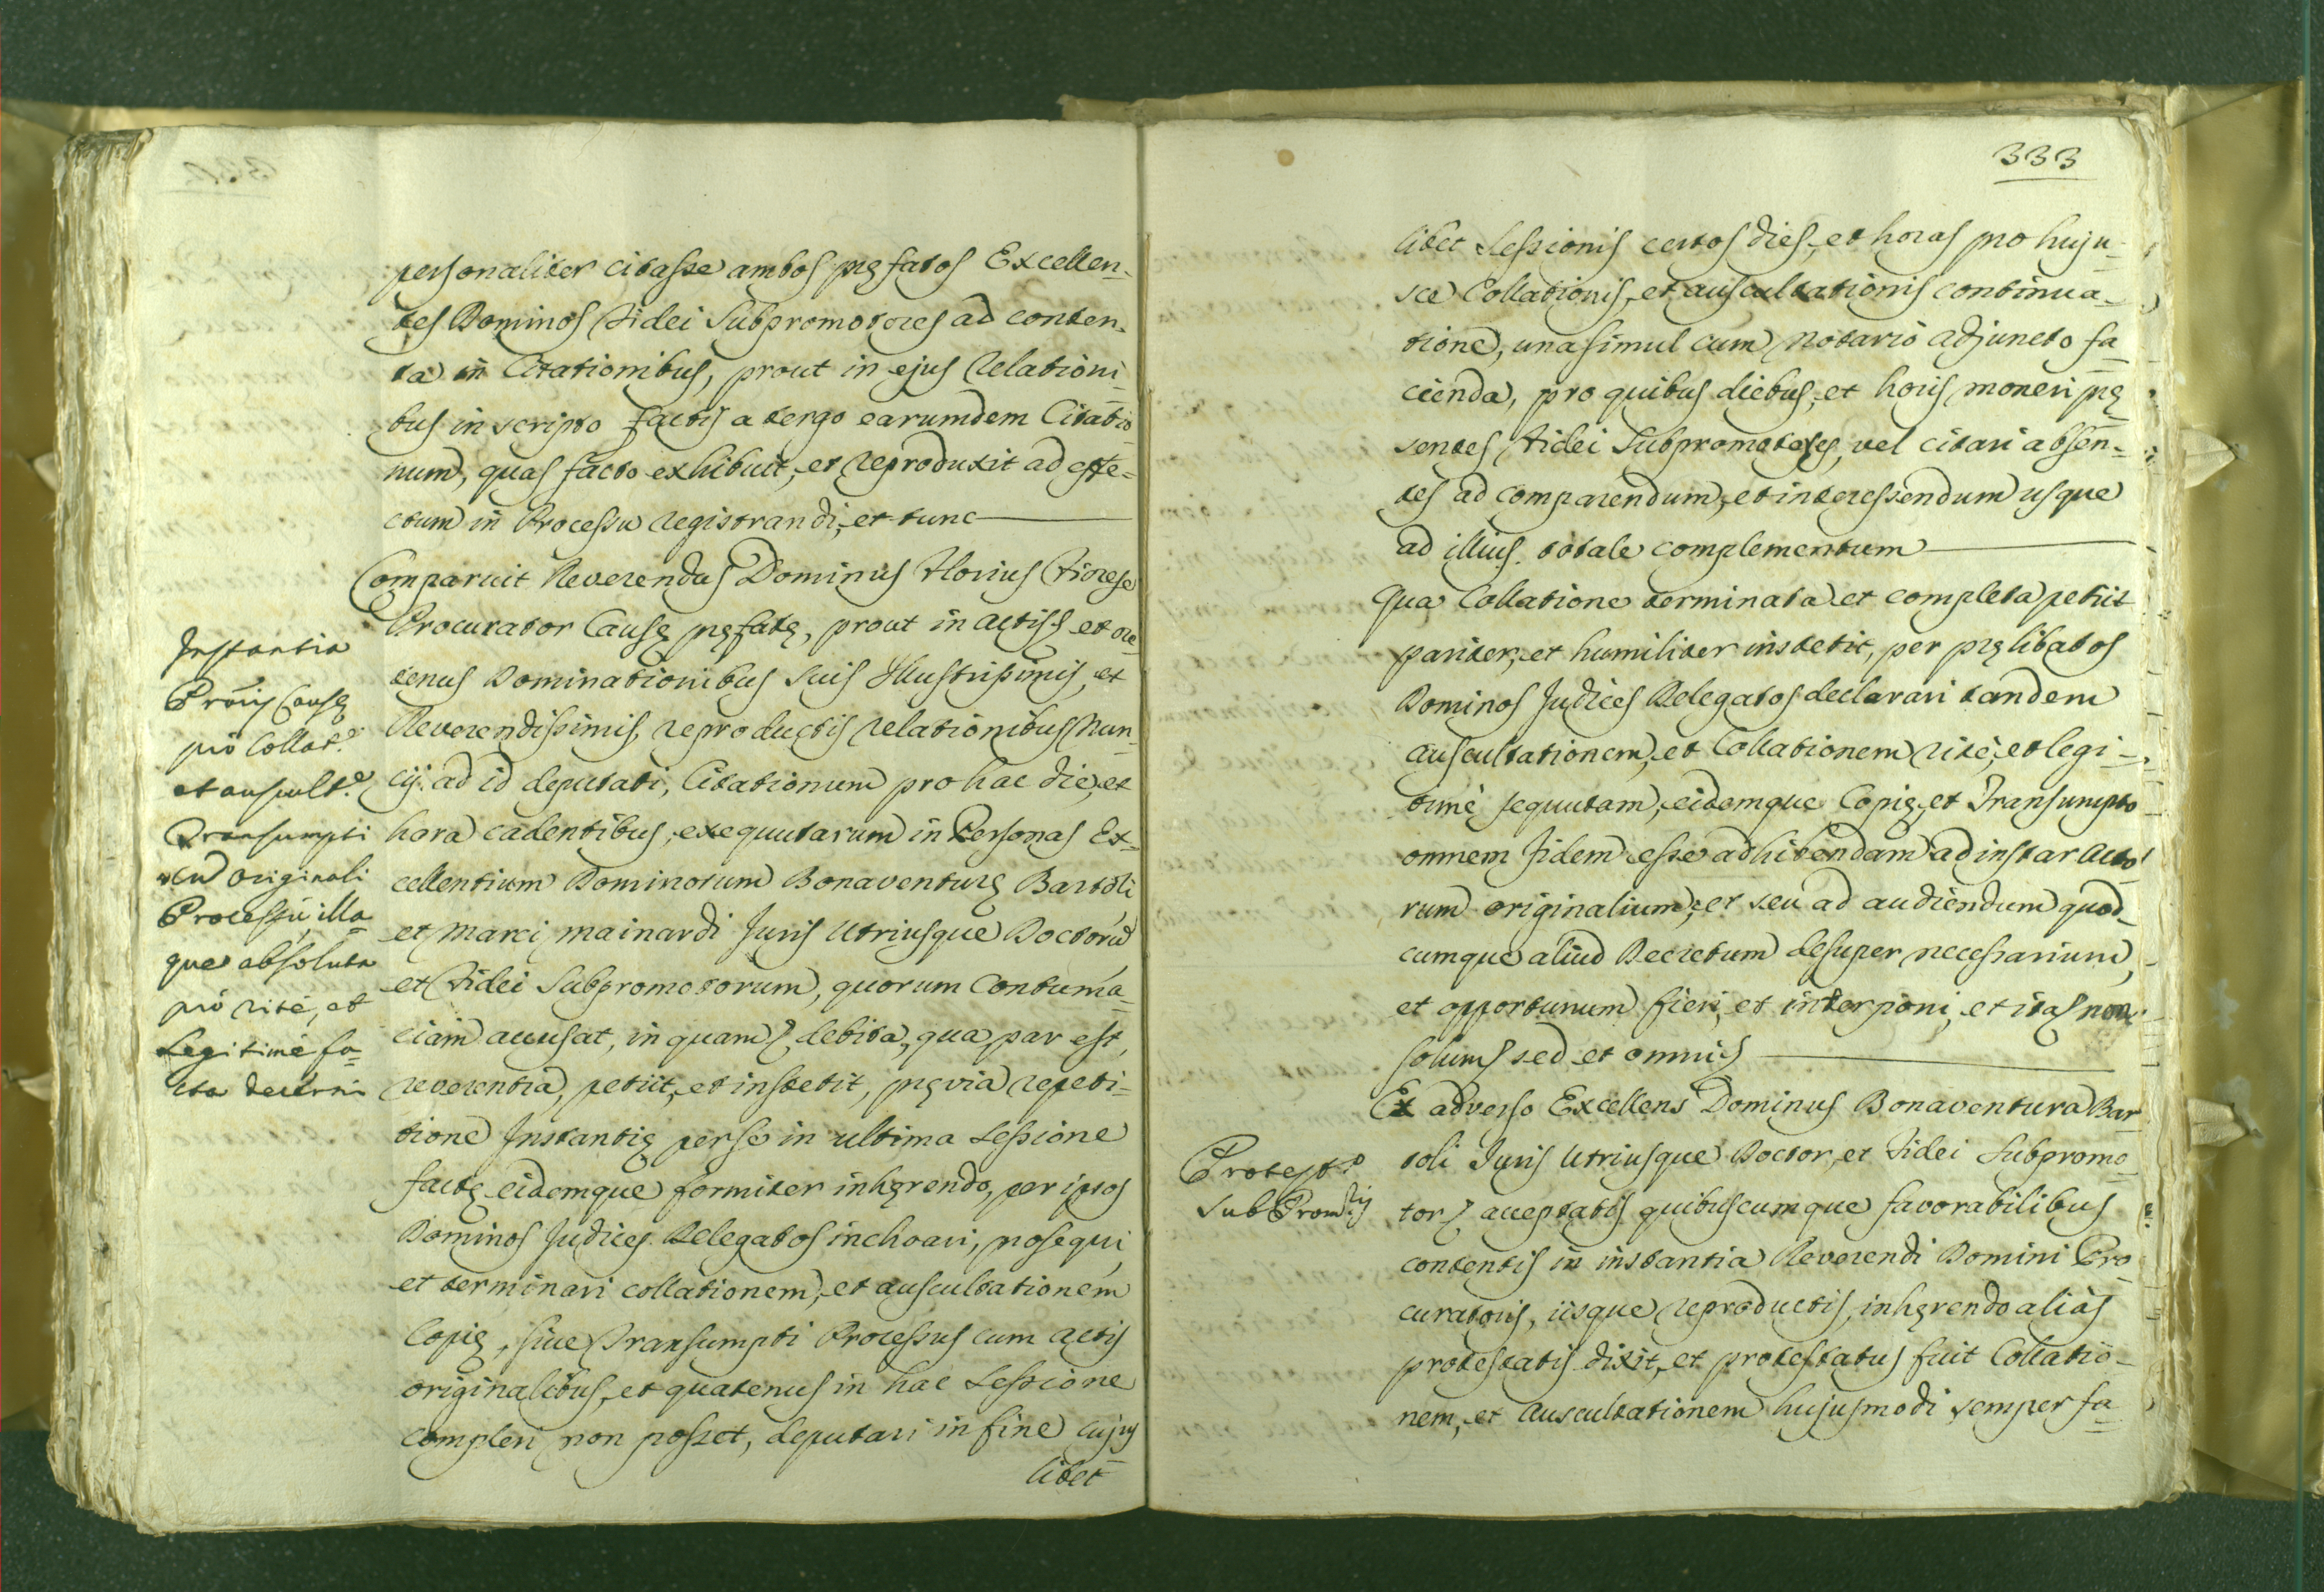 personaliter citasse ambos pręfatos Excellen-
tes Dominos Fidei Subpromotores ad conten-
ta in Citationibus, prout in ejus Relationi-
bus in scripto factis a tergo earumdem Citatio-
num, quas facto exhibuit, et reproduxit ad effe-
ctum in Processu registrandi, et tunc
Comparuit Reverendus Dominus Florius Fiorese
Procurator Causę pręfatę, prout in actis et ore
tenus Dominationibus Suis Illustrissimis, et
Reverendissimis, reproductis relationibus Nun-
cij ad id deputati, Citationum pro hac die, et
hora cadentibus, exequutarum in Personas Ex-
cellentium Dominorum Bonaventurę Bartoli
et Marci Mainardi Juris Utriusque Doctorũ
et Fidei Subpromotorum, quorum Contuma-
ciam accusat, in quam, debita, qua par est,
reverentia, petiit, et institit, pręvia repeti-
tione Instantię per se in ultima Sessione
factę eidemque formiter inhęrendo, per ipsos
Dominos Judices Delegatos inchoari, prosequi,
et terminari collationem, et auscultationem
Copię, sive Transumpti Processus cum actis
originalibus, et quatenus in hac Sessione
compleri non posset, deputari in fine cujus
libet
Instantia
Pro Collat.e
et auscult.e
Transumpti
cũ originali
Processu, illa-
que absoluta
pro rite, et
Legitime fa-
cta decerni
333
libet Sessionis certos dies, et horas pro huju-
sce Collationis, et auscultationis continua-
tione, una simul cum Notario adjuncto fa-
cienda, pro quibus diebus, et horis moneri prę
sentes Fidei Subpromotores, vel citari absen-
tes ad comparendum, et interessendum usque
ad illius totale complementum
Qua Collatione terminata et completa petiit
pariter, et humiliter institit, per prę libatos
Dominos Judices Delegatos declarari tandem
auscultationem, et Collationem rite, et legi-
time sequutam, eidemque Copię, et Transumpto
omnem fidem esse adhibendam ad instar acto
rum originalium, et seu ad audiendum quod-
cumque aliud Decretum desuper necessarium,
et opportunum fieri, et interponi, et ita non
solum sed et omni
Ex adverso Excellens Dominus Bonaventura Bar-
toli Juris Utriusque Doctor, et Fidei Subpromo-
tor, acceptatis quibuscumque favorabilibus
contentis in instantia Reverendi Domini Pro-
curatoris, iisque reproductis, inhęrendo alias
protestatis dixit, et protestatus fuit Collatio-
nem, et Auscultationem hujusmodi semper fa-
Protest.o